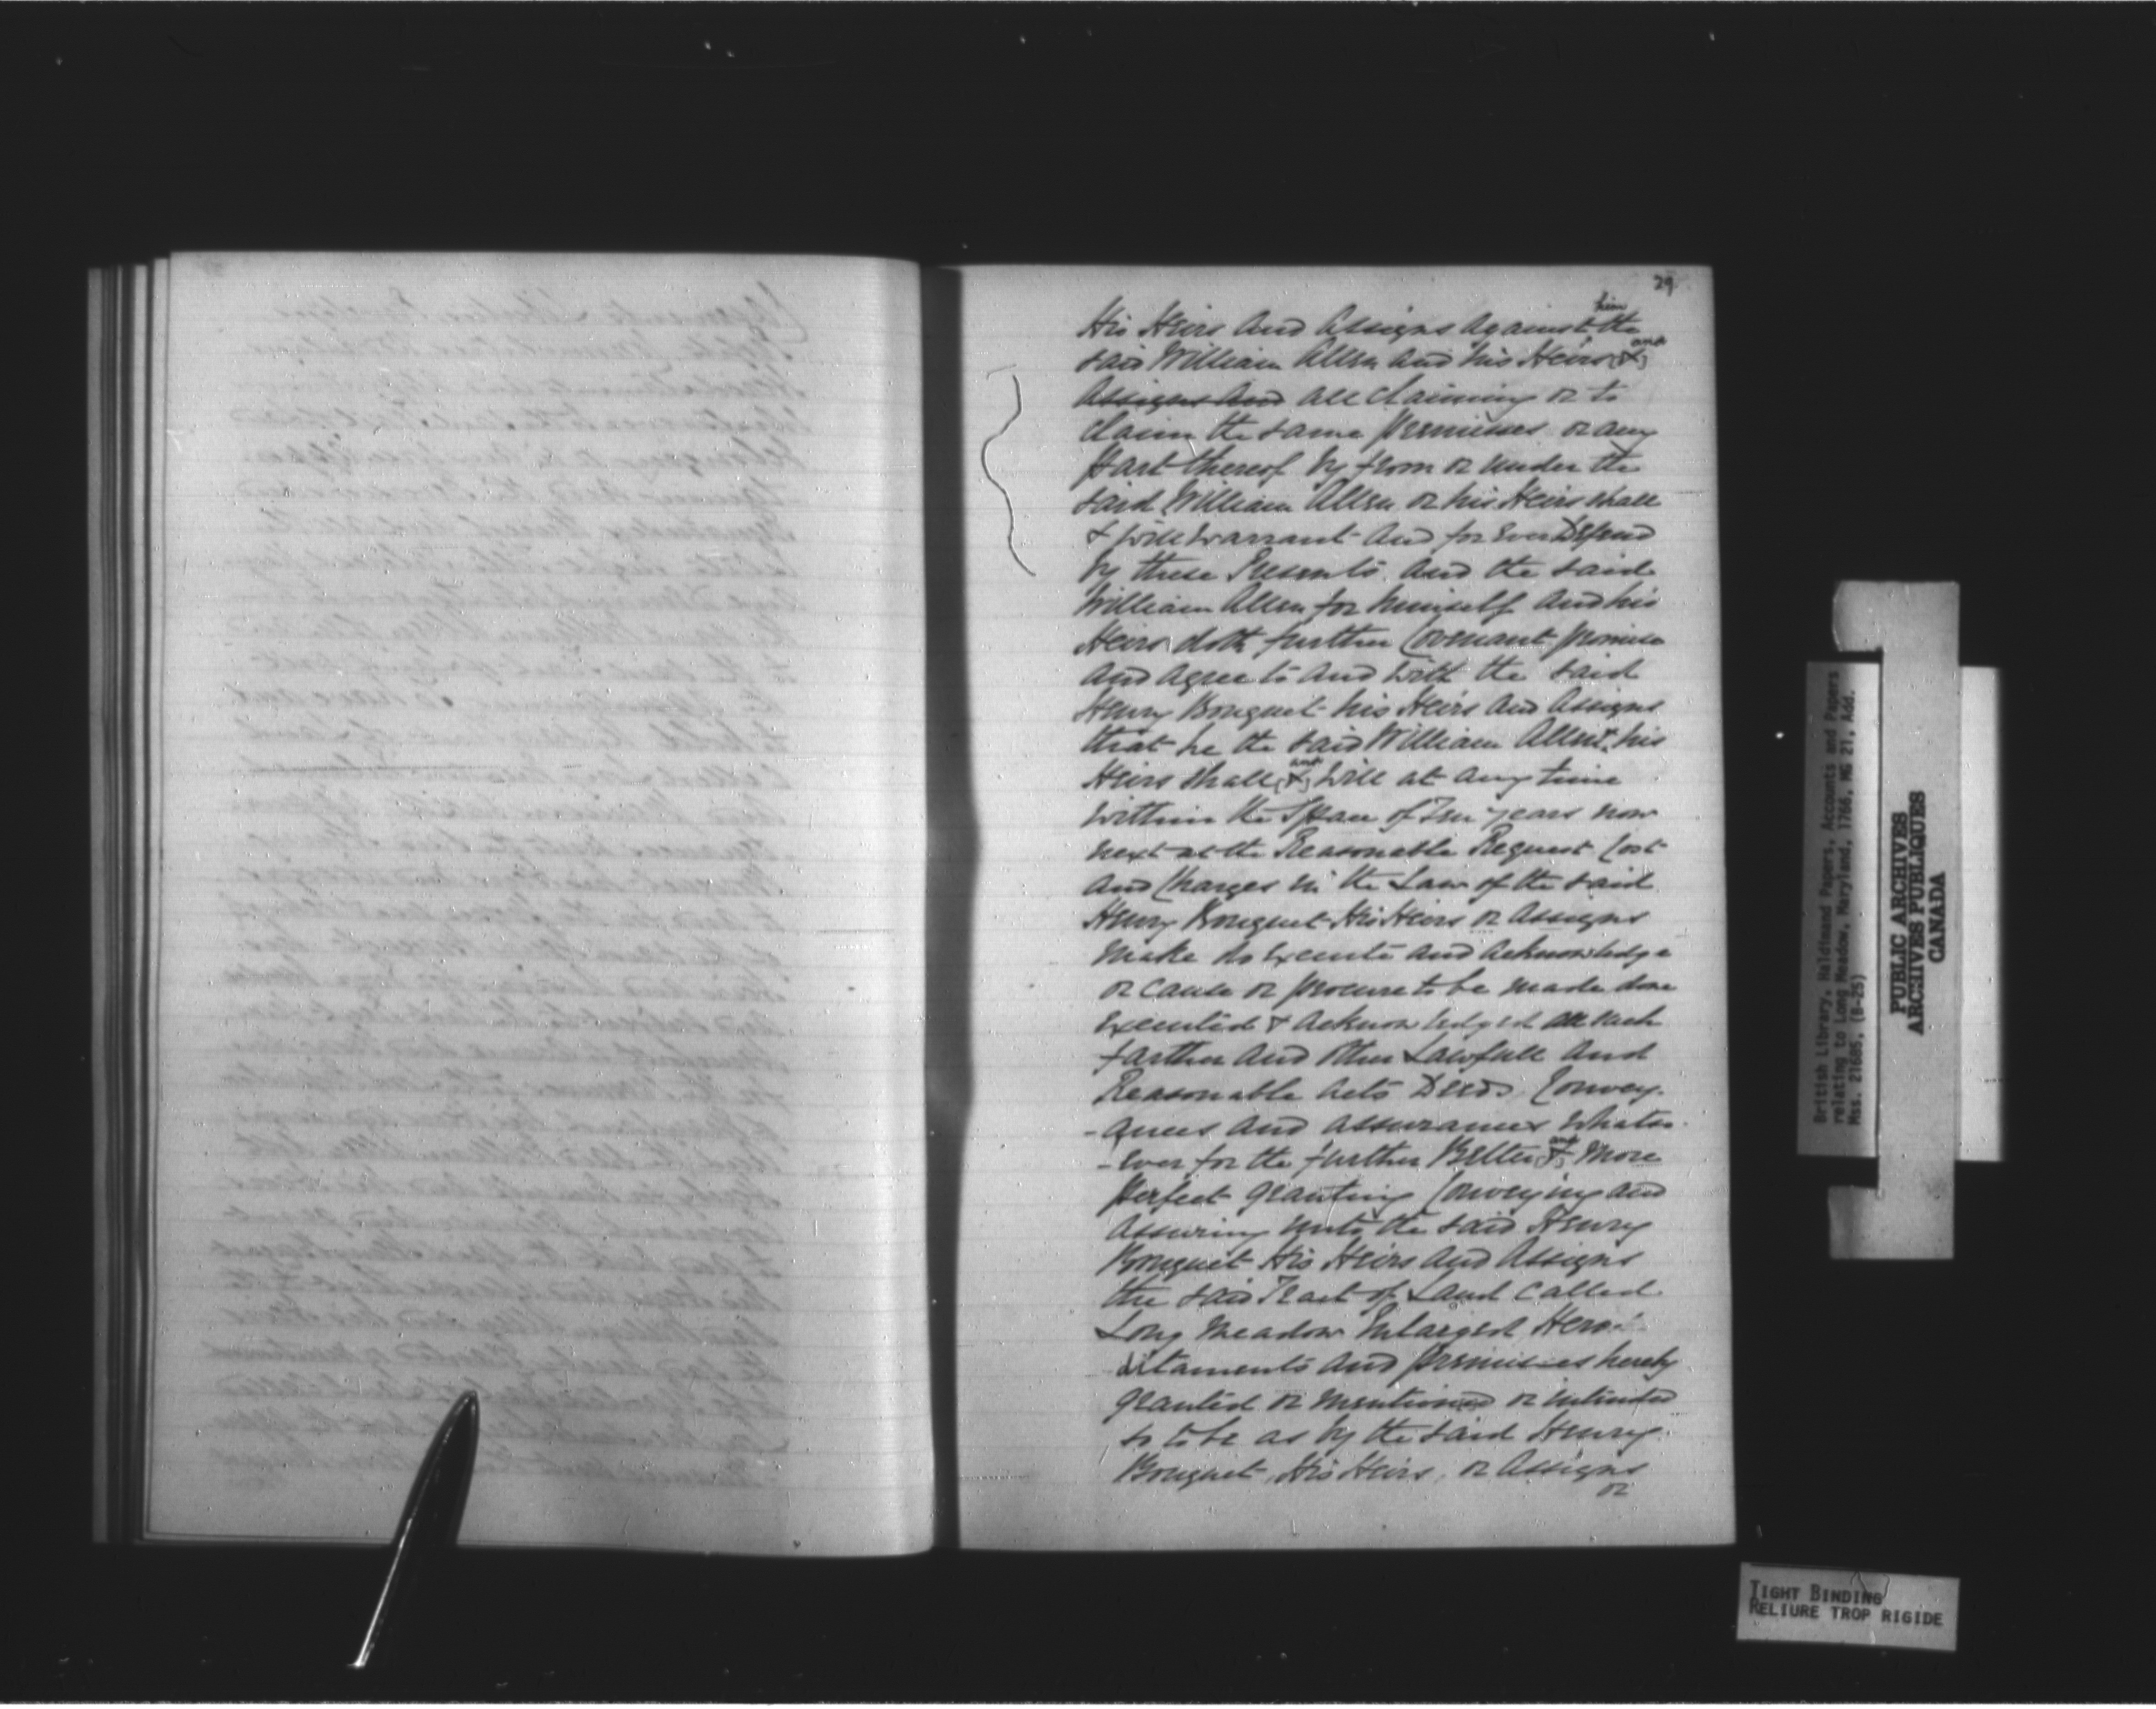 29
His Heirs and Assigns against him the
said William Allen and his Heirs & and
Assigns and all claiming or to
claim the same premisses or any
part thereof by from or under the
said William Allen or his Heirs shall
& will warrant and for Ever Defend
by these Presents. and the said
William Allen for himself and his
Heirs doth further Covenant promise
and agree to and with the said
Henry Bouquet his Heirs and Assigns
that he the said William Allen & his
Heirs shall & and will at any time
within the Space of Ten years now
next at the Reasonable Request Cost
and Charges in the Law of the said
Henry Bouquet His Heirs or Assigns
make do Execute and Acknowledge
or cause or procure to be made done
Executed & Acknowledged all such
farther and other Lawfull and
Reasonable Acts Deeds Convey-
-ances and assurances whatso-
-ever for the further Better & and more
perfect granting Conveying and
Assuring unto the said Henry
Bouquet His Heirs and Assigns
the said Tract of Land called
Long Meadow Enlarged Here-
ditaments and premisses hereby
granted or mentioned or intended
so to be as by the said Henry
Bouquet, His Heirs, or Assigns
or
British Library, Haldimand Papers, Accounts and Papers
relating to Long Meadow, Maryland, 1766, MG 21, Add.
Mss. 21685, (B-25)
PUBLIC ARCHIVES
ARCHIVES PUBLIQUES
CANADA
TIGHT BINDING
RELIURE TROP RIGIDE